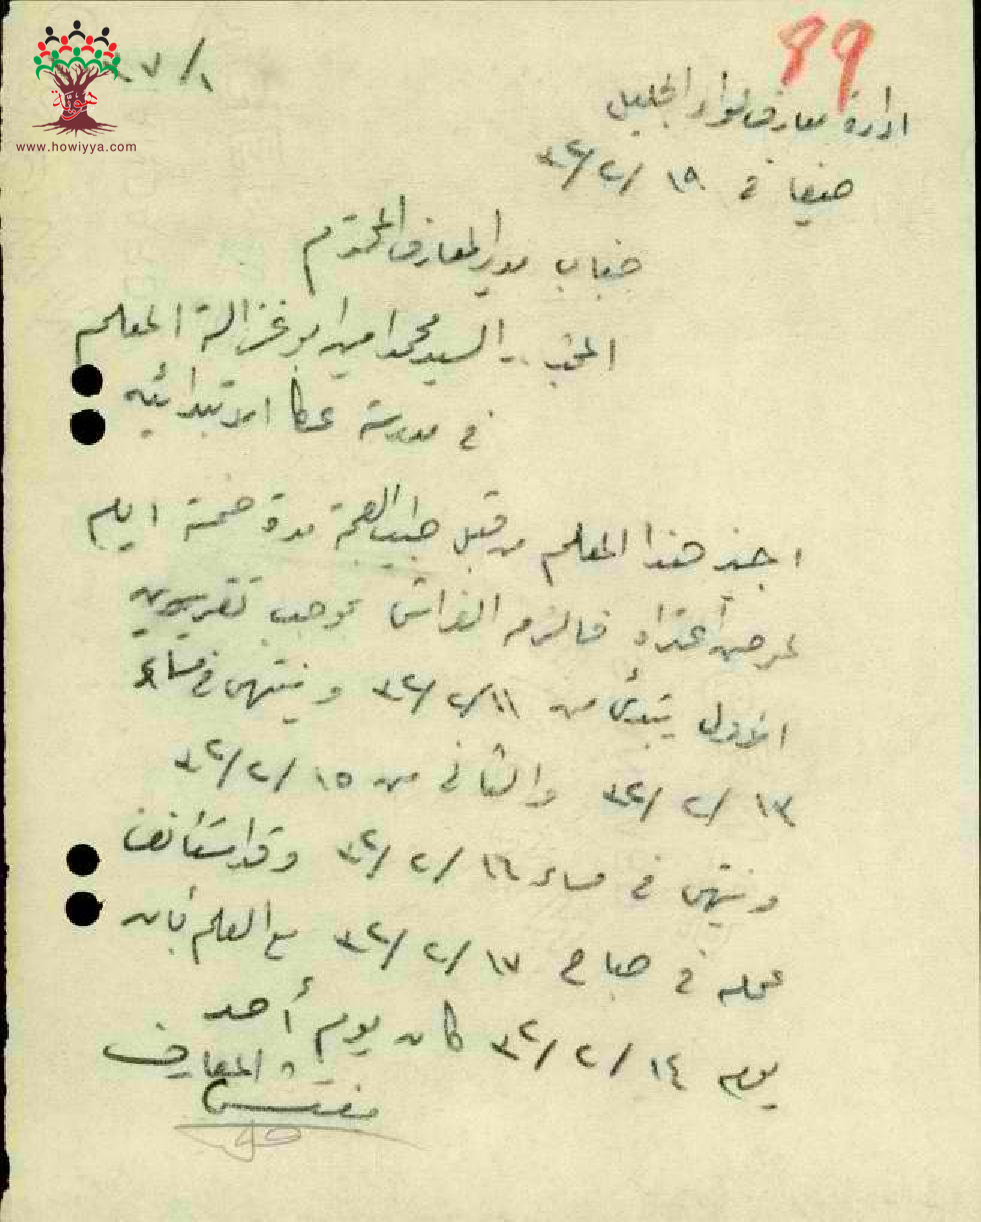 99
١/
هوية
www.howiyya.com
ادارة معارف لواء الجليل
حيفا في ١٩/٢/٣٢
جناب مدير المعارف المحترم
السيد محمد امين ابو غزالة المعلم
في مدرسة عكا الابتدائيه
اجيز هذا المعلم من قبل طبيب الصحة مدة خمسة ايام
لمرض اعتراه فالزمه الفراش بموجب تقريرين
الاول يبتدئ من ١١/٢/٣٢ وينتهي في مساء
١٣/٢/٣٢ والثاني من ١٥/٢/٣٢
وينتهي في مساء ١٦/٢/٣٢ وقد استأنف
عمله في صباح ١٧/٢/٣٢ مع العلم بأن
يوم ١٤/٢/٣٢ كان يوم أحد
مفتش المعارف